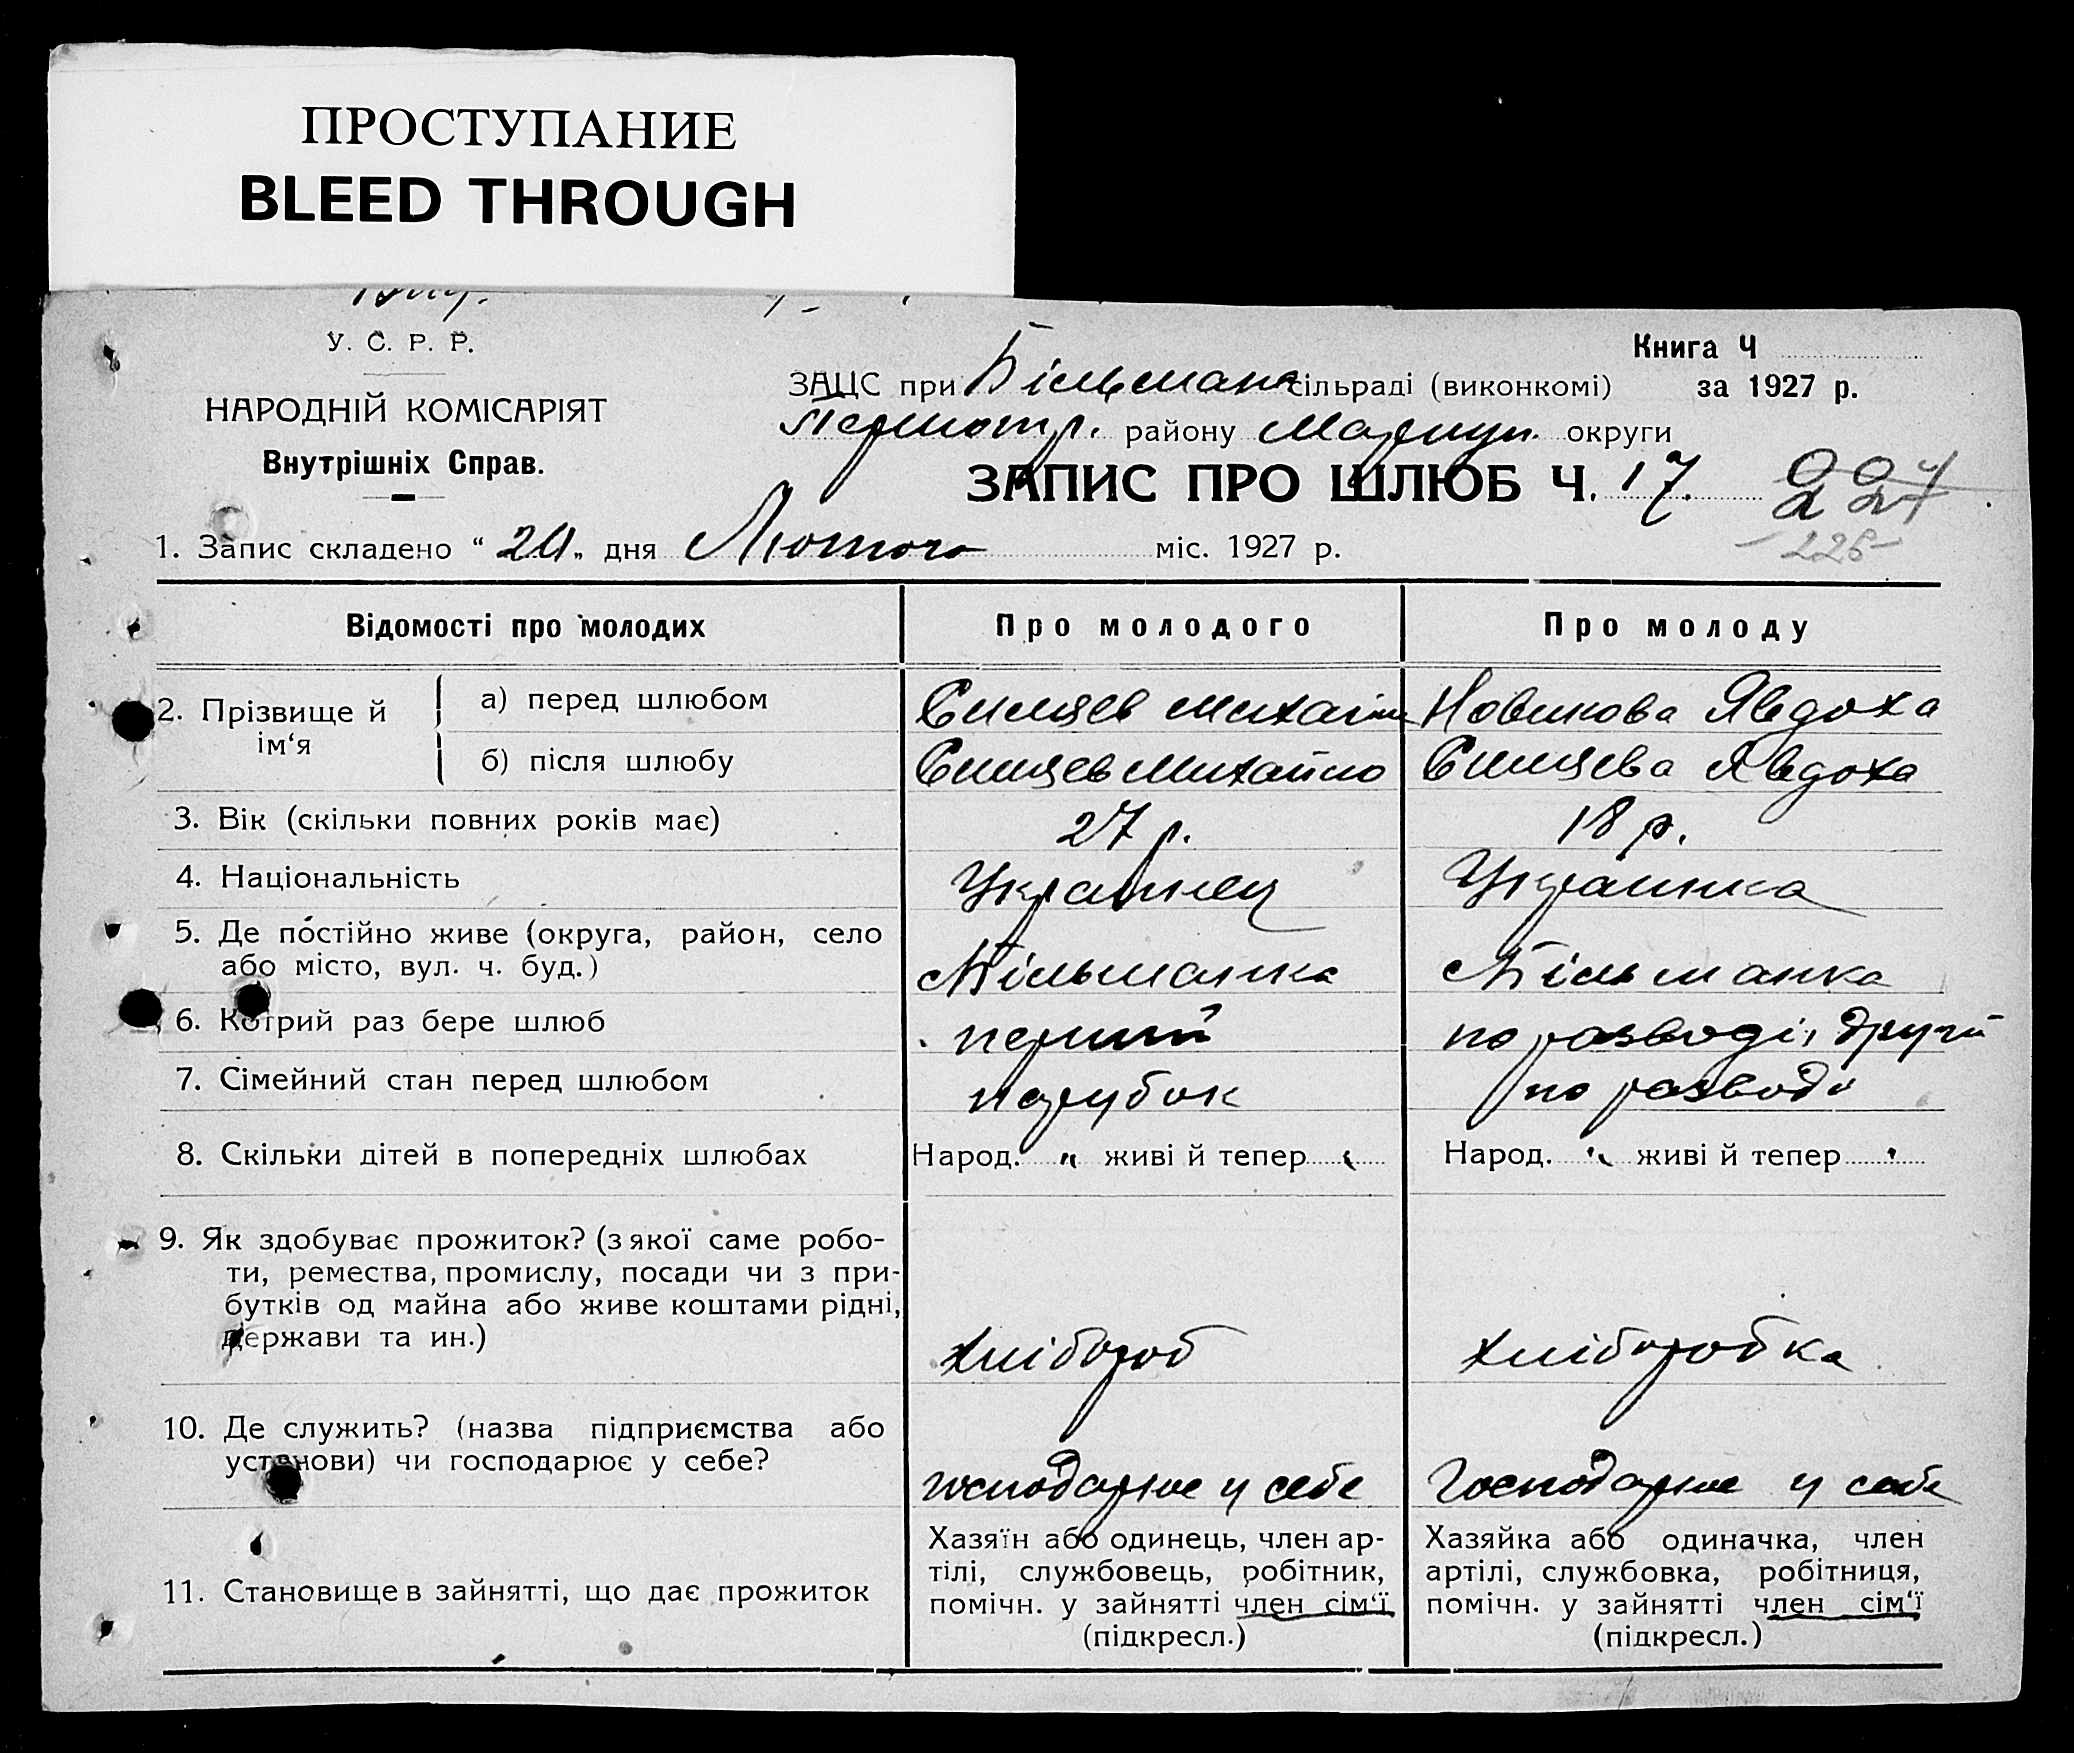 ПРОСТУПАНИЕ
BLEED THROUGH
У. С. Р. Р.
НАРОДНІЙ КОМІСАРІЯТ
Внутрішніх Справ.
Книга Ч
ЗАЦС при Більманк сільраді (виконкомі) за 1927 р.
району Маріуп. округи
ЗАПИС ПРО ШЛЮБ Ч. 17.
227
226
1. Запис складено “ 24 „ дня Лютого міс. 1927 р.
Відомості про молодих Про молодого Про молоду
2. Прізвище й ім‘я
а) перед шлюбом Михайло Новикова Явдоха
б) після шлюбу Михайло Явдоха
3. Вік (скільки повних років має) 27 р. 18 р.
4. Національність Українец Українка
5. Де постійно живе (округа, район, село Більманка Більманка
або місто, вул. ч. буд.)
6. Котрий раз бере шлюб перший по розводі, другий
7. Сімейний стан перед шлюбом парубок по розводі
8. Скільки дітей в попередніх шлюбах Народ. „ живі й тепер „ Народ. „ живі й тепер „
9. Як здобуває прожиток? (з якої саме робо-
ти, ремества, промислу, посади чи з при-
бутків од майна або живе коштами рідні,
держави та ин.) хлібороб хліборобка
10. Де служить? (назва підприємства або
установи) чи господарює у себе? господарює у себе Господарює у себе
11. Становище в зайнятті, що дає прожиток
Хазяїн або одинець, член ар-
тілі, службовець, робітник,
помічн. у зайнятті член сім‘ї
(підкресл.)
Хазяйка або одиначка, член
артілі, службовка, робітниця,
помічн. у зайнятті член сім‘ї
(підкресл.)